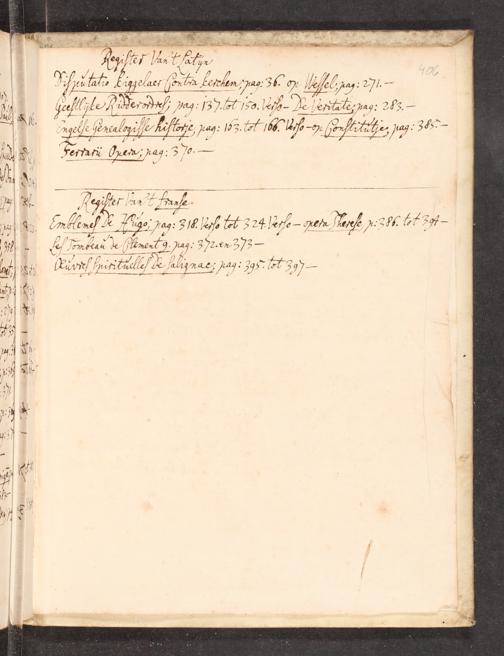 Register Van't Latyn
406
Disputatio kiggelaer Contra kerchem; pag: 36. op Wessel; pag: 271.—
Geestlijke Ridderordres; pag: 137. tot 150. Verso— De Veritate; pag: 283.—
Engelse Genealogisse historje, pag: 163. tot 166. Verso— op Constitutje, pag: 385.—
Ferrarii Opera; pag: 370.—
Register Van't franse.
Emblemes De Hugo; pag: 318. Verso tot 324. Verso— opera Therese, p: 386. tot 394—
Les Tombeau de Clement 9. pag: 372. en 373—
Œuvres Spirituelles De Salignac; pag: 395. tot 397—